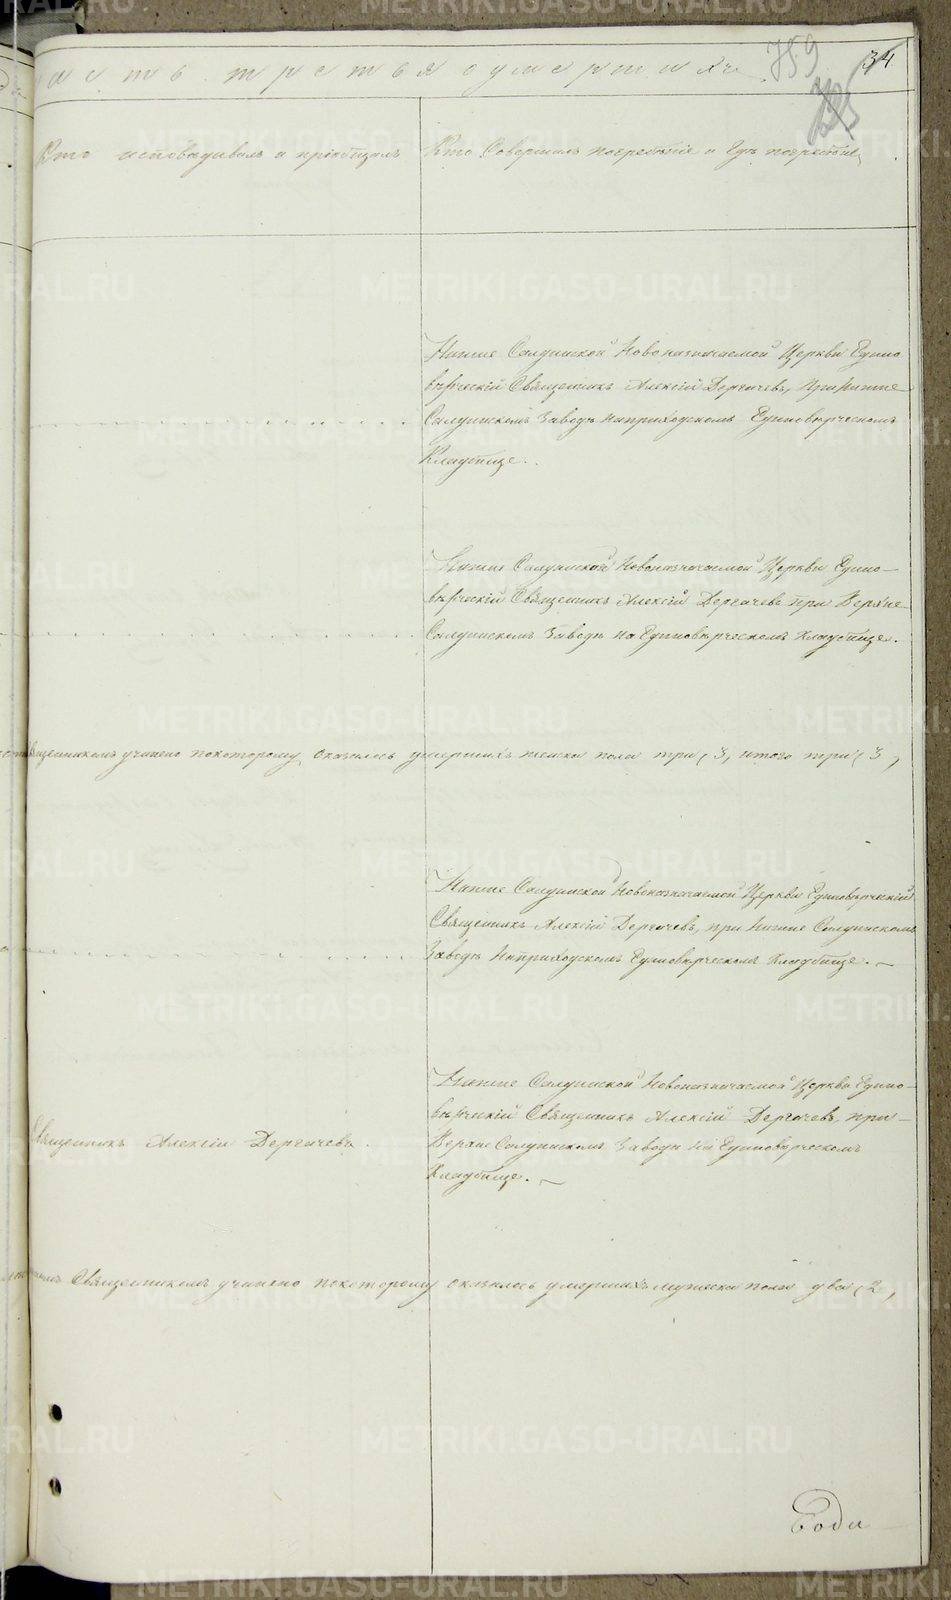 асть третья о умершихъ
759
34
Кто исповѣдывалъ и пріобщалъ
Кто Совершалъ погребеніе и Гдѣ погребены
Нижне Салдинской Новоназначаемой Церкви Едино
вѣрческій Священникъ Алексій Дергачевъ, При Нижне
Салдинскомъ Заводѣ на приходскомъ Единовѣрческомъ
Кладбище.
Нижне Салдинской Новоназначаемой Церкви Едино-
вѣрческій Священникъ Алексій Дергачевъ при Верхне
Салдинскомъ Заводѣ на Единовѣрческомъ Кладбище.
священникомъ учинено покоторому оказалось умершихъ женска пола три (3, итого три (3,
Нижне Салдинской Новоназначаемой Церкви Единовѣрческій
Священникъ Алексій Дергачевъ, при Нижне Салдинскомъ
Заводѣ На приходскомъ Единовѣрческомъ Кладбище. —
Нижне Салдинской Новоназначаемой Церкви Едино-
вѣрческій Священникъ Алексій Дергачевъ, при-
Священникъ Алексій Дергачевъ.
Верхне Салдинскомъ Заводѣ На Единовѣрческомъ
Кладбище. —
Священникомъ учинено покоторому оказалось умершихъ мужеска пола два (2,
METRIKI.GASO-URAL.RU